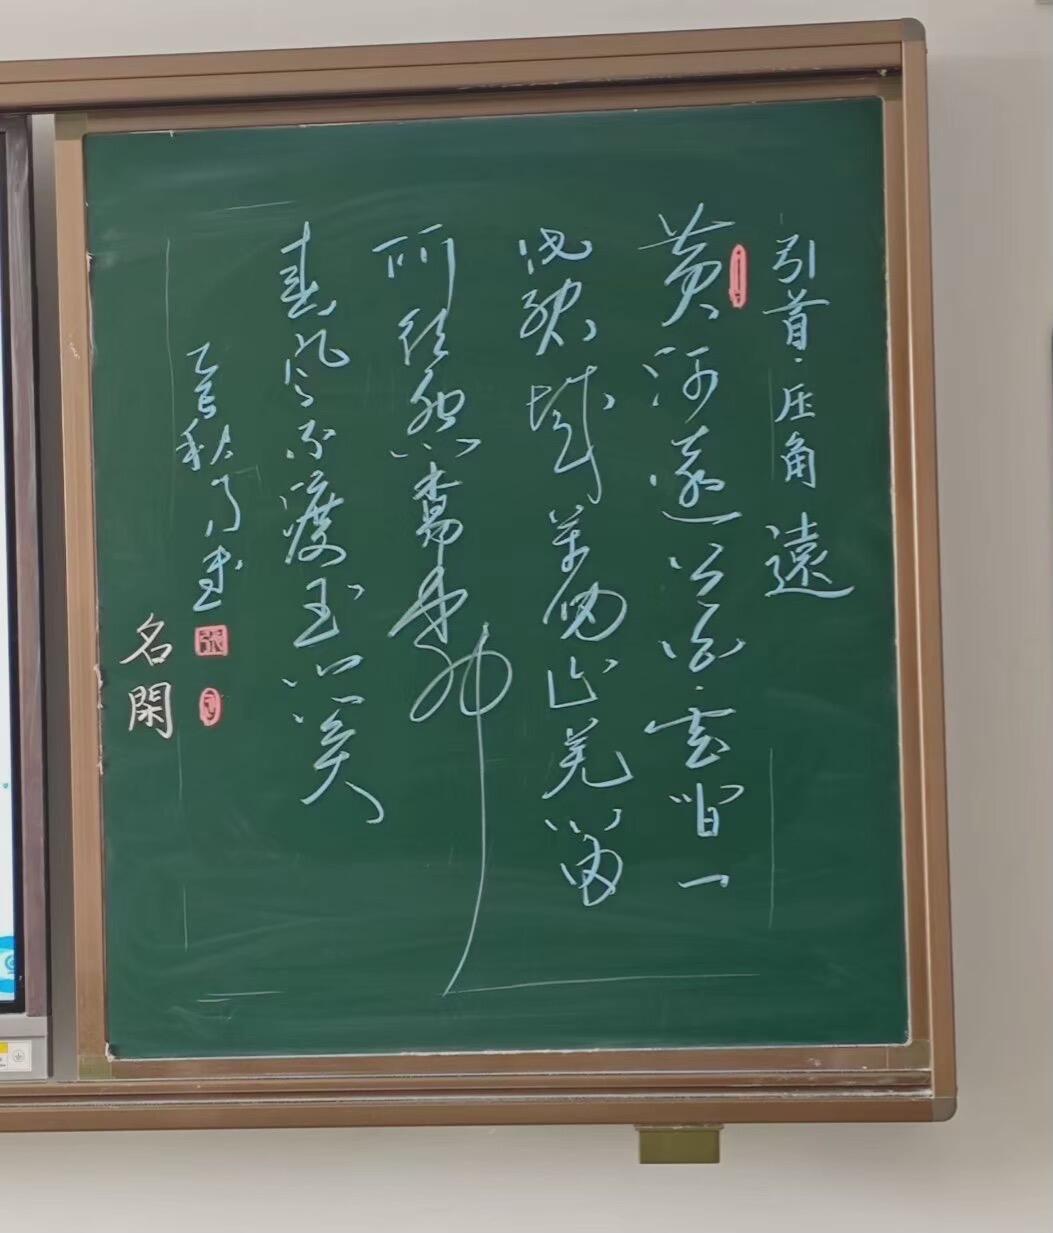 引首·压角 遠
黄河遠上白雲間一
片孤城萬仞山羌笛
何須怨楊柳
春風不度玉門關
乙巳秋月書
名閑